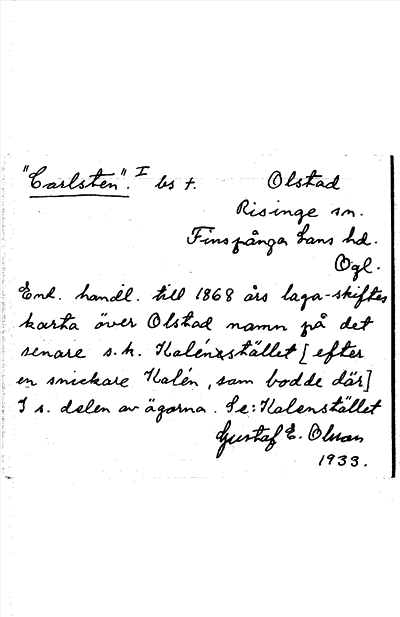 "Carlsten". I bs t. Olstad
Risinge sn.
Finspånga läns hd.
Ögl.
Enl. handl. till 1868 års laga-skiftes
karta över Olstad namn på det
senare s.k. Kalénstället [efter
en snickare Kalén, som bodde där]
I s. delen av ägorna. Se: Kalenstället
Gustaf E. Olsson
1933.